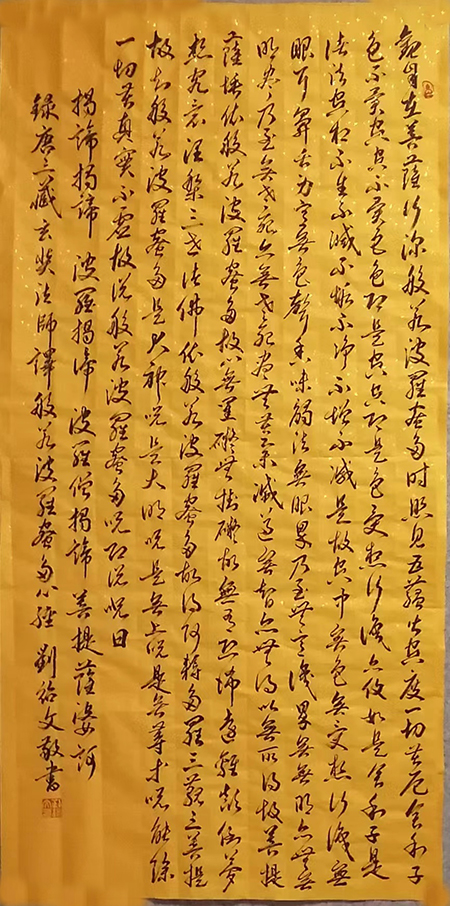 观自在菩萨行深般若波羅蜜多时照见五蕴皆空度一切苦厄舍利子
色不异空空不异色色即是空空即是色受想行识亦复如是舍利子是
诸法空相不生不滅不垢不净不增不减是故空中无色无受想行识無
眼耳鼻舌身意無色聲香味觸法無眼界乃至无意識界無無明亦无无
明尽乃至無老死亦無老死尽无苦集滅道無智亦无得以無所得故菩提
薩埵依般若波羅蜜多故心無罣礙无挂礙故無有恐怖遠離顛倒夢
想究竟涅槃三世諸佛依般若波羅蜜多故得阿耨多羅三藐三菩提
故知般若波羅蜜多是大神呪是大明呪是無上呪是無等等呪能除
一切苦真實不虚故说般若波羅蜜多呪即说呪曰
揭諦揭諦 波羅揭諦 波羅僧揭諦 菩提薩婆訶
錄唐三藏玄奘法師譯般若波羅蜜多心經 劉治文敬書